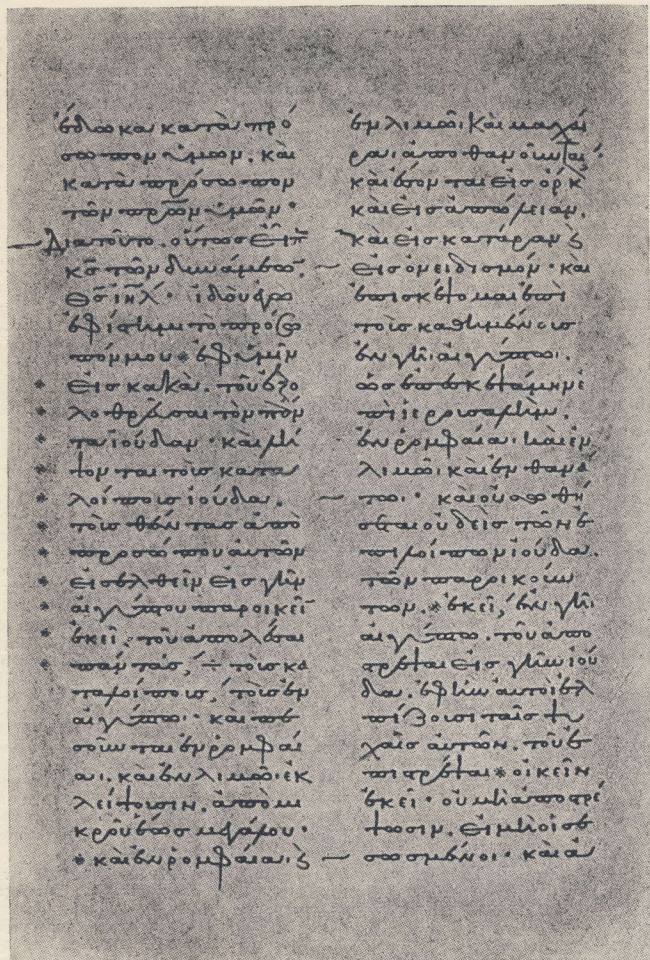 ἔδωκα κατὰ πρό
σωπον ὑμῶν. καὶ
κατὰ πρόσωπον
τῶν πρ̅ων ὑμῶν·
Διατοῦτο. οὕτωσ εἶπ
κ̅σ τῶν δυνάμεω
θ̅σ ι̅η̅λ· ἰδοὺ ἐγὼ
ἐφίστημι τὸ πρόσω
πόν μου ※ ἐφ ὑμῖν
※ εἰσ κακά. τοῦ ἐξο
※ λοθρεῦσαι τὸν πάν
※ τα ἰούδαν· καὶ λή
※ ψονται τοὺσ κατα
※ λοίπουσ ἰούδα.
※ τοὺσ θέντασ ἀπὸ
※ προσώπου αὐτῶν
※ εἰσελθεῖν εἰσ γῆν
※ αἰγύπτου παροικεῖ
※ ἐκεῖ· τοῦ ἀπολέσαι
※ πάντασ, ÷ τοὺσ κα
ταλοίπουσ, τοὺσ ἐν
αἰγύπτωι· καὶ πε
σοῦνται ἐν ῥομφαί
αι. καὶ ἐν λιμῶι ἐκ
λείψουσιν. ἀπὸ μι
κροῦ ἕωσ μεγάλου·
※ καὶ ἐν ῥομφαίαι
ἐν λιμῶι. Καὶ μαχαί
ραι ἀποθανοῦνται·
καὶ ἔσονται εἰσ ὁρκ
καὶ εἰσ ἀπώλειαν.
καὶ εἰσ κατάραν
εἰσ ὀνειδισμόν· καὶ
ἐπισκέψομαι ἐπὶ
τοὺσ καθημένουσ
ἐν γῆι αἰγύπτωι.
ὡσ ἐπεσκεψάμην ἐ
πὶ ιερουσαλήμ.
ἐν ῥομφαία· καὶ ἐν
λιμῶι. καὶ ἐν θανά
τωι· καὶ οὐ σωθή
σεται οὐδεὶσ τῶν ἐ
πιλοίπων ἰούδα.
τῶν παροικούν
των. ※ ἐκεῖ, ἐν γῆι
αἰγύπτωι. τοῦ ἀπο
στρέψαι εἰσ γῆν ἰού
δα. ἐφ ἣν αὐτοὶ ἐλ
πίζουσι ταῖσ ψυ
χαῖσ αὐτῶν. τοῦ ἐ
πιστρέψαι ※ οἰκεῖν
ἐκεῖ· οὐ μὴ ἀποστρέ
ψωσιν. εἰ μὴ οἱ σε
σωσμένοι· καὶ ἀ